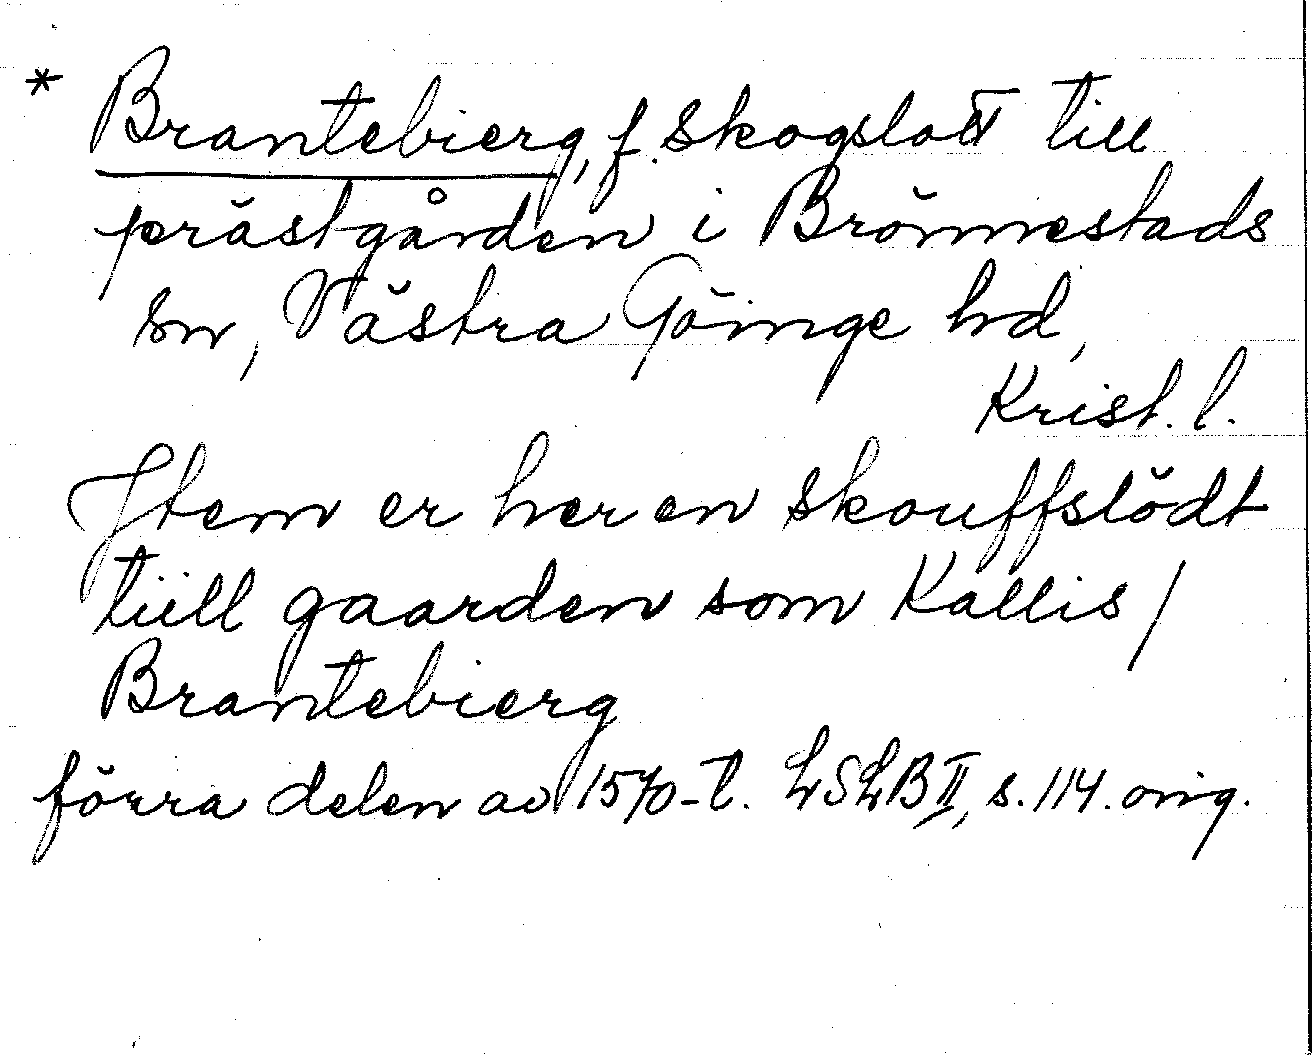 * Brantebierg, f. skogslott till
prästgården i Brönnestads
sn, Västra Göinge hd,
Krist. l.
Item er her en skouffslödt
tiill gaarden som Kallis /
Brantebierg
förra delen av 1570-t. LSLB II, s. 114. orig.